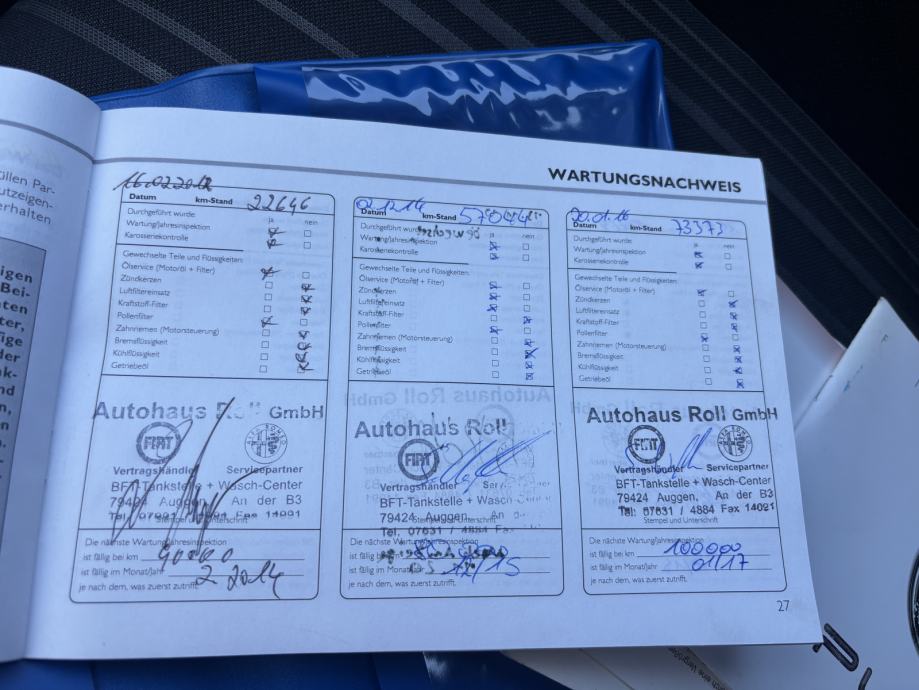 üllen Par-
utzeigen-
erhalten
eigen
Bei-
aten
ter,
tige
der
nk-
nd
WARTUNGSNACHWEIS
16.02.2012 22646
Datum km-Stand
Durchgeführt wurde: ja nein
Wartung/Jahresinspektion
Karosseriekontrolle
Gewechselte Teile und Flüssigkeiten:
Ölservice (Motoröl + Filter)
Zündkerzen
Luftfiltereinsatz
Kraftstoff-Filter
Pollenfilter
Zahnriemen (Motorsteuerung)
Bremsflüssigkeit
Kühlflüssigkeit
Getriebeöl
Autohaus Roll GmbH
FIAT ALFA ROMEO
Vertragshändler Servicepartner
BFT-Tankstelle + Wasch-Center
79424 Auggen, An der B3
Stempel und Unterschrift
Die nächste Wartung/Jahresinspektion
ist fällig bei km
ist fällig im Monat/Jahr 2 2014
je nach dem, was zuerst zutrifft.
02.12.14
Datum km-Stand
Durchgeführt wurde: ja nein
Wartung/Jahresinspektion
Karosseriekontrolle
Gewechselte Teile und Flüssigkeiten:
Ölservice (Motoröl + Filter)
Zündkerzen
Luftfiltereinsatz
Kraftstoff-Filter
Pollenfilter
Zahnriemen (Motorsteuerung)
Bremsflüssigkeit
Kühlflüssigkeit
Getriebeöl
Autohaus Roll
FIAT
Vertragshändler
BFT-Tankstelle + Wasch
79424 Auggen, An d
Stempel und Unterschrift
Tel. 07631 / 4884 Fax
Die nächste Wartung/Jahresinspektion
ist fällig bei km
ist fällig im Monat/Jahr 12/15
je nach dem, was zuerst zutrifft.
20.01.16
Datum km-Stand 73373
Durchgeführt wurde: ja nein
Wartung/Jahresinspektion
Karosseriekontrolle
Gewechselte Teile und Flüssigkeiten:
Ölservice (Motoröl + Filter)
Zündkerzen
Luftfiltereinsatz
Kraftstoff-Filter
Pollenfilter
Zahnriemen (Motorsteuerung)
Bremsflüssigkeit
Kühlflüssigkeit
Getriebeöl
Autohaus Roll GmbH
FIAT ALFA ROMEO
Vertragshändler Servicepartner
BFT-Tankstelle + Wasch-Center
79424 Auggen, An der B3
Tel. 07631 / 4884 Fax 14091
Stempel und Unterschrift
Die nächste Wartung/Jahresinspektion
ist fällig bei km 100000
ist fällig im Monat/Jahr 01/17
je nach dem, was zuerst zutrifft.
27